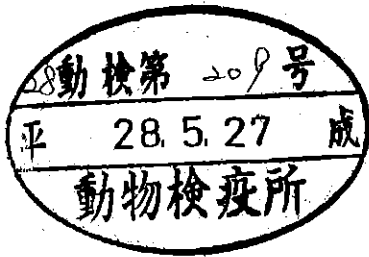 28動検第209号
平 28.5.27 成
動物検疫所